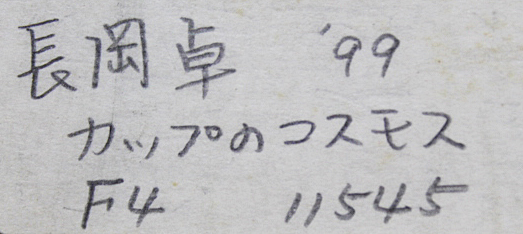 長岡卓 '99
カップのコスモス
F4 11545